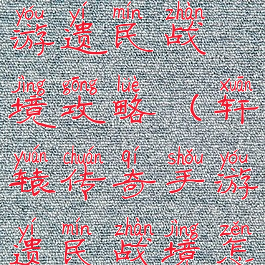 yóu yí mín zhàn
游遗民战
jìng gōng lüè xuān
境攻略（轩
yuán chuán qí shǒu yóu
辕传奇手游
yí mín zhàn jìng zěn
遗民战境怎